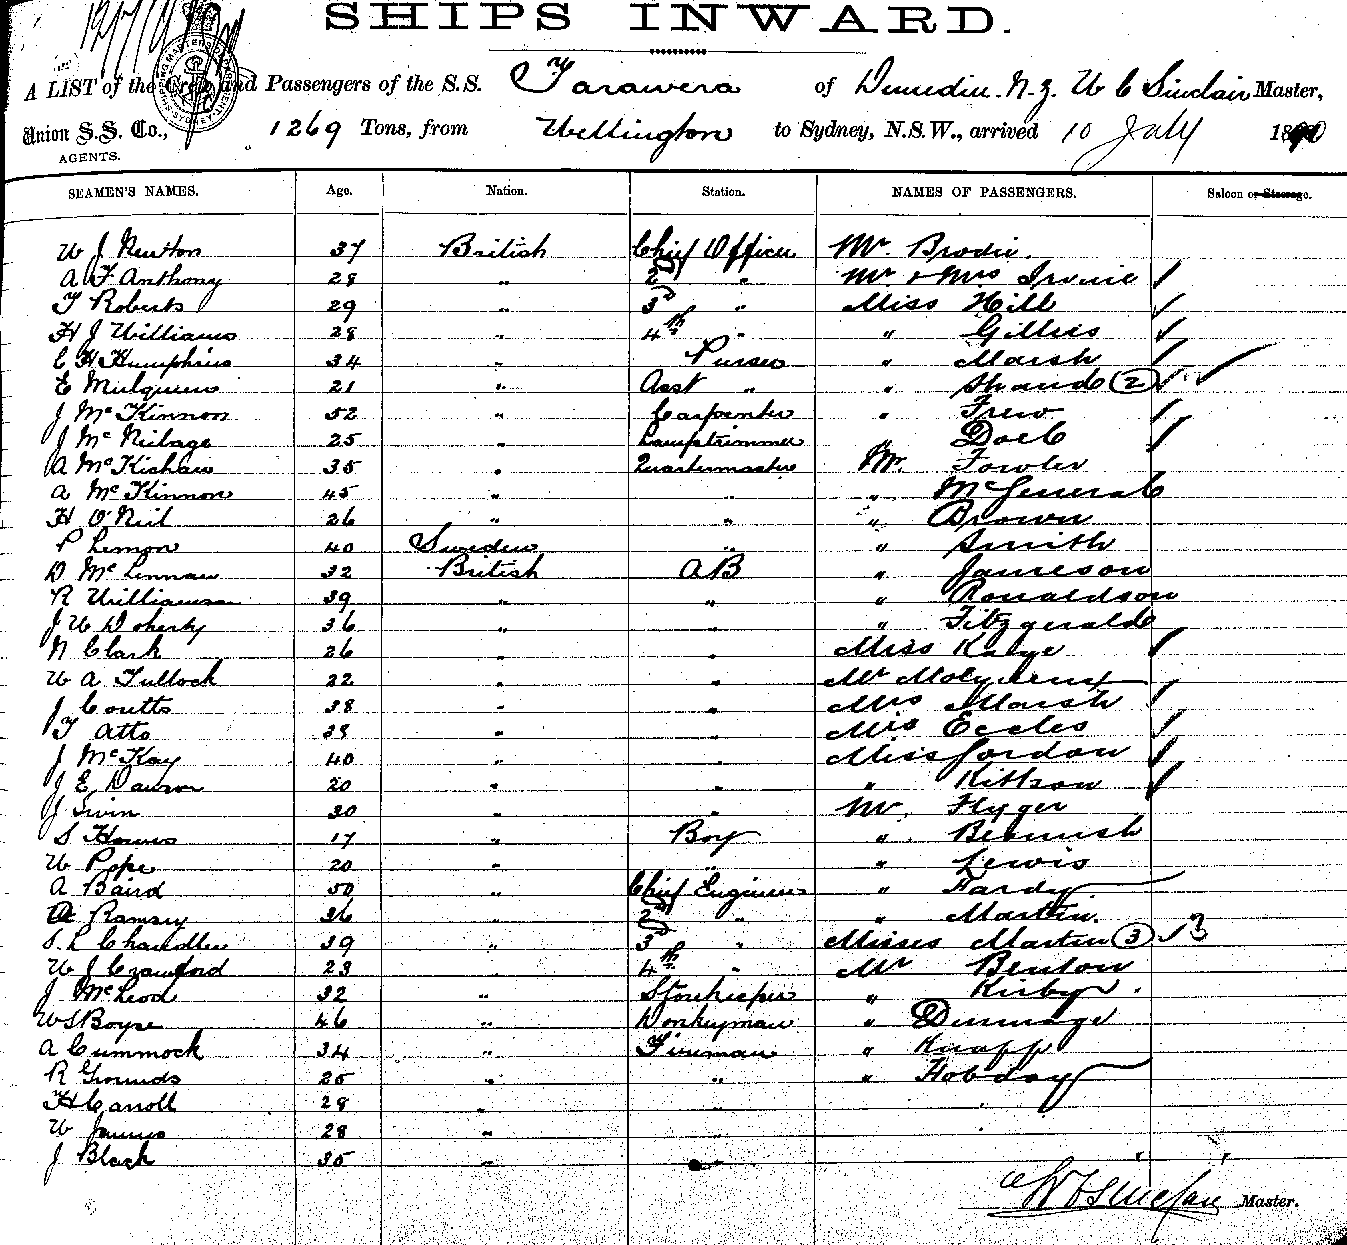 SHIPS INWARD.
A LIST of the Crew and Passengers of the S.S. Tarawera of Dunedin. N.Z. W C Sinclair Master,
Union S.S. Co., 1269 Tons, from Wellington to Sydney, N.S.W., arrived 10 July 1890
AGENTS.
SEAMEN'S NAMES. Age. Nation. Station. NAMES OF PASSENGERS. Saloon or Steerage.
W J Newton 37 British Chief Officer Mr. Brodie.
A F Anthony 28 " 2d " Mr & Mrs Irvine
T Roberts 29 " 3d " Miss Hill
H J Williams 28 " 4th " " Gillies
C H Humphries 34 " Purser " Marsh
E Mulqueen 21 " Asst " " Shand (2)
J McKinnon 52 " Carpenter " Frew
J Mc 25 " Lamptrimmer "
A Mc 35 " Quartermaster Mr. Fowler
A McKinnon 45 " " "
H O'Neil 26 " " " Brown
P Lemon 40 Sweden " " Smith
D McLennan 32 British AB " Jameson
R Williamson 39 " " " Ronaldson
J W Doherty 36 " " " Fitzgerald
N Clark 26 " " Miss Kaye
W A Tullock 22 " " Mr Molyneux
J Coutts 38 " " Mrs Marsh
T Atto 38 " " Eccles
J McKay 40 " " Miss Gordon
J E Dawson 20 " " " Kittson
J 30 " " Mr. Flyger
S Howes 17 " Boy " Beamish
W Pope 20 " " " Lewis
A Baird 50 " Chief Engineer " Hardy
A Ramsey 36 " 2d " " Martin.
S. L Chandler 39 " 3d " Misses Martin (3) 3
W J Crawford 23 " 4th " Mr Benton
J McLeod 32 " Storekeeper " Kirby.
W S Boyse 46 " Donkeyman "
A Cummock 34 " Fireman " Knapp
R Grounds 25 " " " Hobday
H Carroll 28 " "
W James 28 " "
J Black 35 " "
W C Sinclair Master.